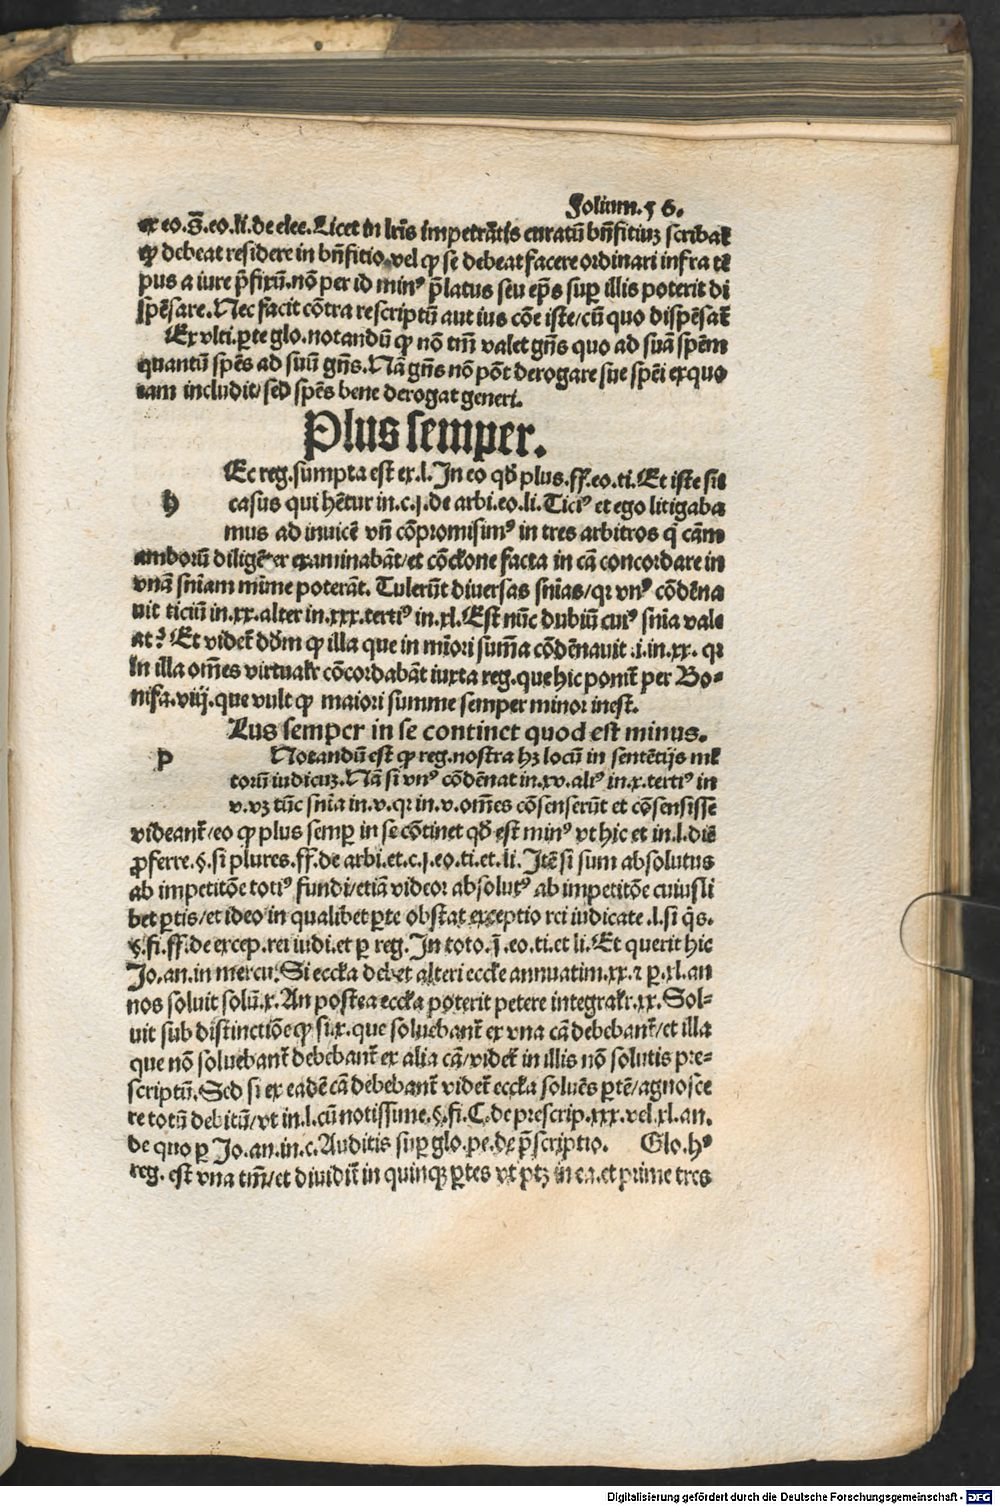 Folium.56.
ex eo.§.eo.li.de elec.Licet in lr̄is impetrātis curatū bn̄fitiuꝫ scribat̄
ꝙ debeat residere in bn̄fitio vel ꝙ se debeat facere ordinari infra tē
pus a iure p̄fixū.nō per id minꝰ p̄latus seu ep̄s suꝑ illis poterit di
spēsare.Nec facit cōtra rescriptū aut ius cōe iste/cū quo dispēsat̄
Ex vlti.ꝑte glo.notandū ꝙ nō tm̄ valet gn̄s quo ad suā spēm
quantū spēs ad suū gn̄s.Nā gn̄s nō pōt derogare sue spēi ex quo
eam includit/sed spēs bene derogat generi.
Plus semper.
h
Ec reg.sumpta est ex.l.In eo qđ plus.ff.eo.ti.Et iste sit
casus qui hētur in.c.j.de arbi.eo.li.Ticiꝰ et ego litigaba
mus ad inuicē vn̄ cōpromisimꝰ in tres arbitros q̄ cām
amborū diligēter examinabāt/et cōclone facta in cā concordare in
vnā sn̄iam mīnime poterāt.Tulerūt diuersas sn̄ias/qꝛ vnꝰ cōdēna
uit ticiū in.xx.alter in.xxx.tertiꝰ in.xl.Est nūc dubiū cuiꝰ sn̄ia vale
at? Et videt̄ dd̄m ꝙ illa que in mīori sum̄a cōdēnauit .i.in.xx. qꝛ
in illa om̄es virtualr̄ cōcordabāt iuxta reg.que hic ponit̄ per Bo-
nifa.viij.que vult ꝙ maiori summe semper minor inest.
P
Lus semper in se continet quod est minus.
Notandū est ꝙ reg.nostra hꝫ locū in sentētijs ml̄
torū iudicuꝫ.Nā si vnꝰ cōdēnat in.xv.aliꝰ in.x.tertiꝰ in
v.vꝫ tūc sn̄ia in.v.qꝛ in.v.om̄es cōsenserūt et cōsensisse
videant̄/eo ꝙ plus semꝑ in se cōtinet qđ est minꝰ vt hic et in.l.diē
ꝓferre.§.si plures.ff.de arbi.et.c.j.eo.ti.et.li.Itē si sum absolutus
ab impetitōe totiꝰ fundi/etiā videor absolutꝰ ab impetitōe cuiusli
bet ꝑtis/et ideo in qualibet ꝑte obstat exceptio rei iudicate.l.si q̄s.
§.fi.ff.de excep.rei iudi.et ꝑ reg.In toto.j̄.eo.ti.et li.Et querit hic
Jo.an.in mercu.Si eccl̄a debet alteri eccl̄e annuatim.xx.⁊ ꝑ.xl.an
nos soluit solū.x.An postea eccl̄a poterit petere integralr̄.xx.Sol-
uit sub distinctiōe ꝙ si.x.que soluebant̄ ex vna cā debebant̄/et illa
que nō soluebant̄ debebant̄ ex alia cā/videt̄ in illis nō solutis pre-
scriptū.Sed si ex eadē cā debebant̄ videt̄ eccl̄a soluēs ꝑtē/agnosce
re totū debitū/vt in.l.cū notissime.§.fi.C.de prescrip.xxx.vel.xl.an.
de quo ꝑ Jo.an.in.c.Auditis suꝑ glo.pe.de p̄scriptio. Glo.hꝰ
reg. est vna tm̄/et diuidit̄ in quinqꝫ ꝑtes vt ptꝫ in ea.et prime tres
Digitalisierung gefördert durch die Deutsche Forschungsgemeinschaft - DFG